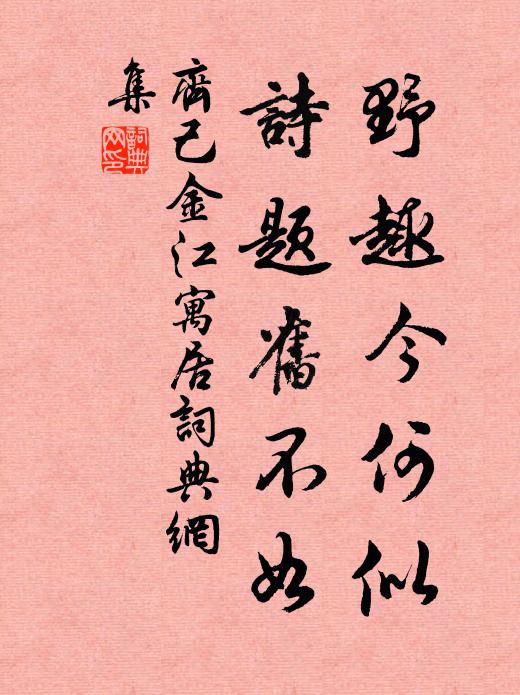 野趣今何似
詩題舊不如
齊己金江寓居詞典網
集
詞典網印